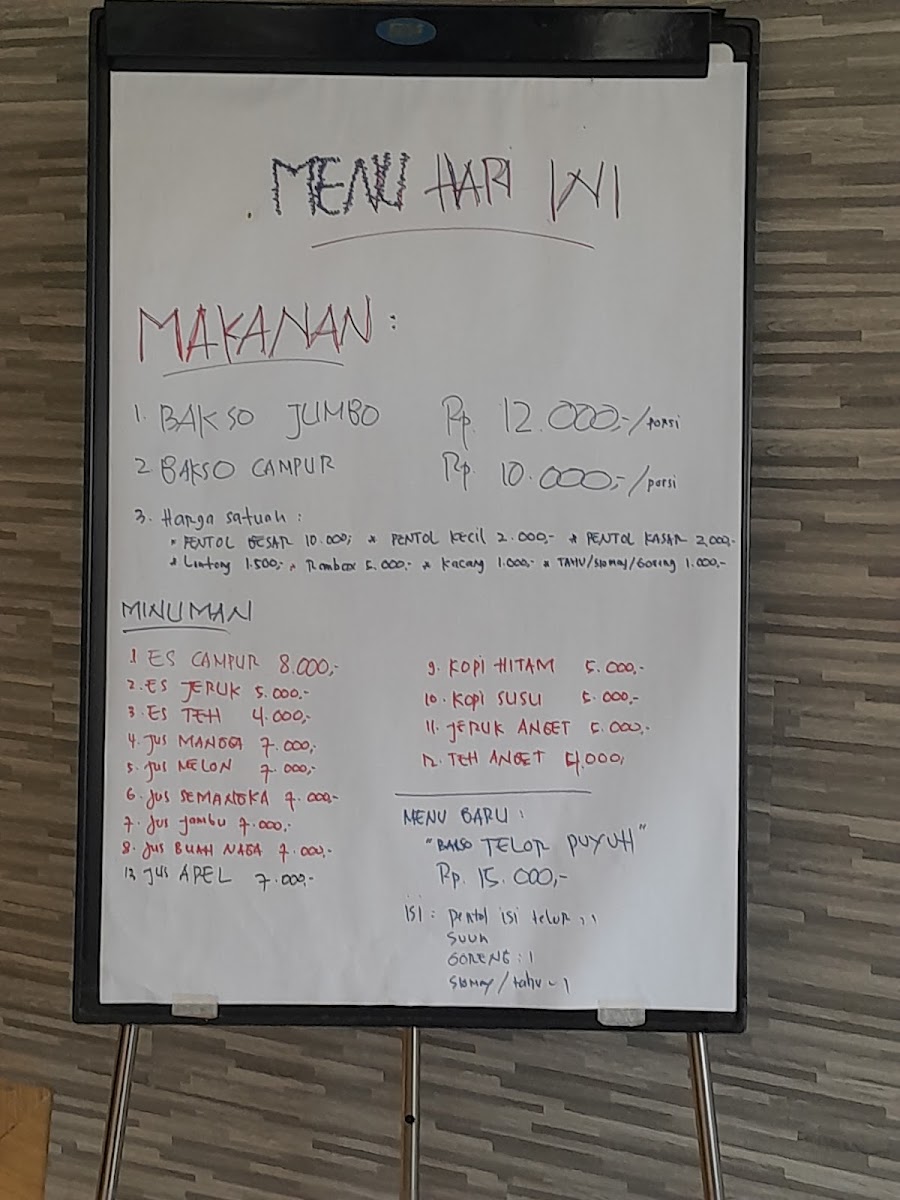 MENU HARI INI
MAKANAN :
1. BAKSO JUMBO Rp. 12.000,-/porsi
2 BAKSO CAMPUR Rp. 10.000,-/porsi
3. Harga satuan :
* PENTOL BESAR 10.000,- * PENTOL KECIL 2.000,- * PENTOL KASAR 2.000,-
* Lontong 1.500,- * Rambax 5.000,- * Kacang 1.000,- * TAHU/Siomay/Goreng 1.000,-
MINUMAN
1 ES CAMPUR 8.000,-
2. ES JERUK 5.000,-
3. ES TEH 4.000,-
4. Jus MANGGA 7.000,-
5. Jus MELON 7.000,-
6. Jus SEMANGKA 7.000,-
7. Jus Jambu 7.000,-
8. Jus BUAH NAGA 7.000,-
13. Jus APEL 7.000,-
9. KOPI HITAM 5.000,-
10. KOPI SUSU 5.000,-
11. JERUK ANGET 5.000,-
12. TEH ANGET 4.000,
MENU BARU :
"BAKSO TELOR PUYUH"
Rp. 15.000,-
isi : pentol isi telur : 1
SUUN
GORENG : 1
Siomay/tahu - 1